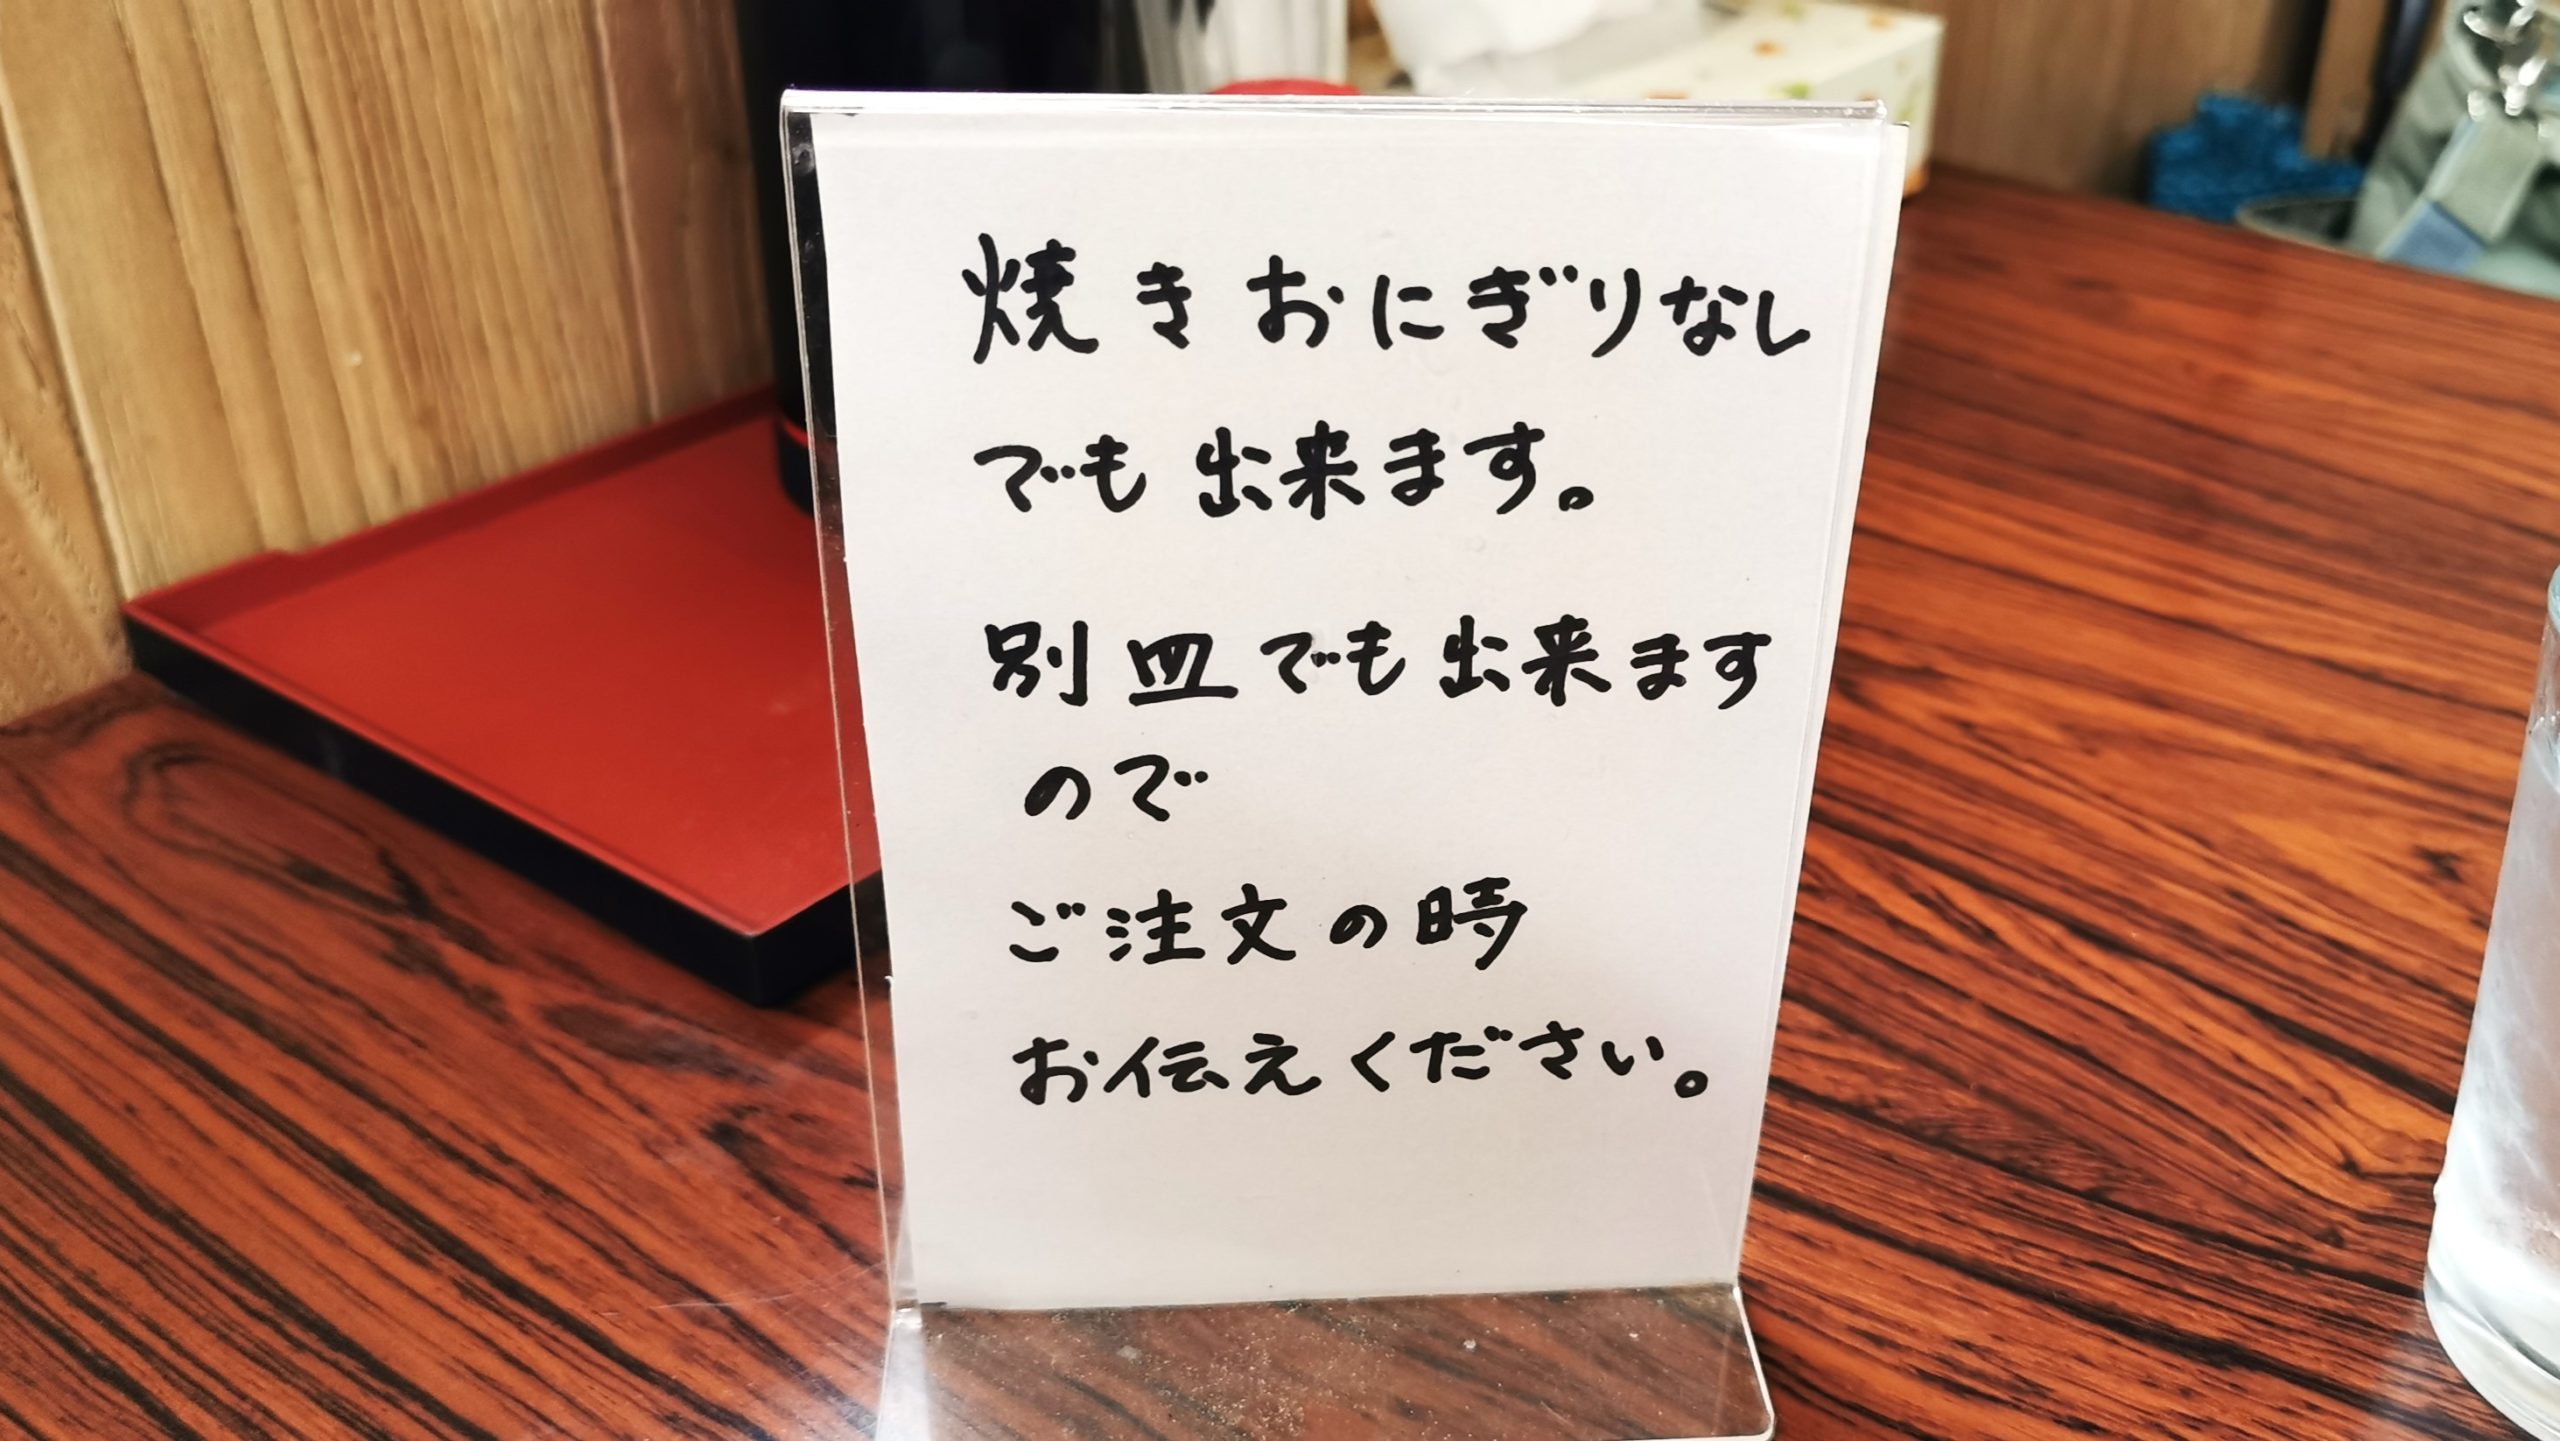 焼きおにぎりなし
でも出来ます。
別皿でも出来ます
ので
ご注文の時
お伝えください。